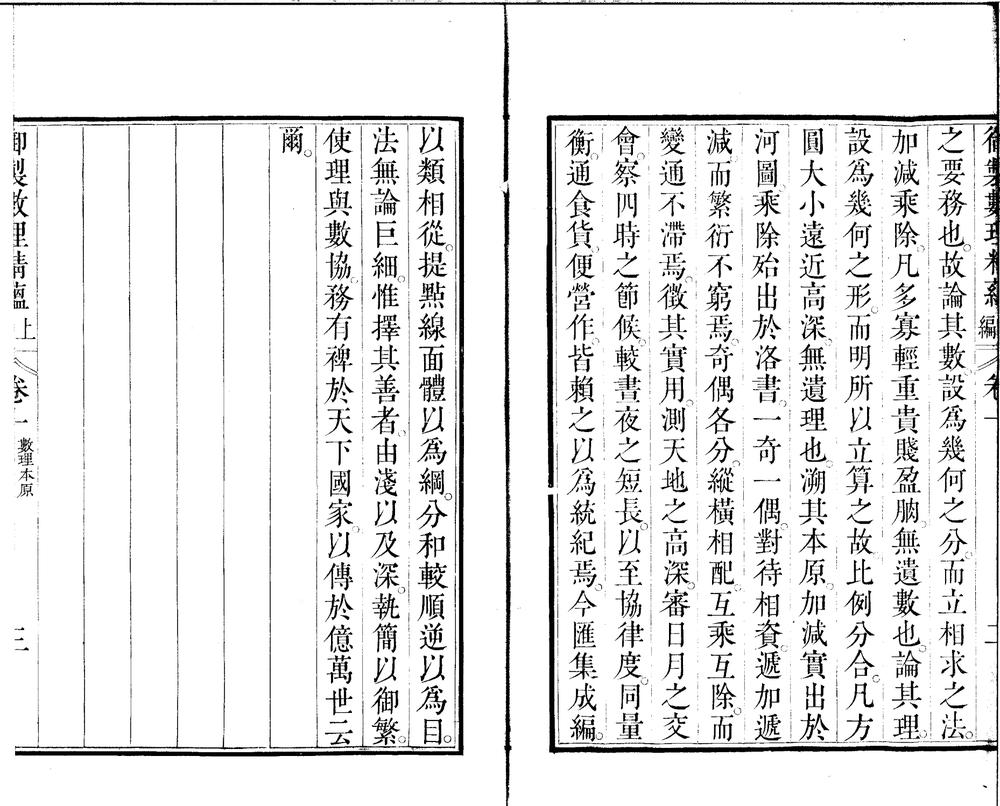 御製數理精蘊 編 卷一 二
之要務也。故論其數設爲幾何之分。而立相求之法。
加減乘除。凡多寡輕重貴賤盈朒。無遺數也。論其理。
設爲幾何之形。而明所以立算之故。比例分合。凡方
圓大小遠近高深。無遺理也。溯其本原。加減實出於
河圖。乘除殆出於洛書。一奇一偶。對待相資。遞加遞
減。而繁衍不窮焉。奇偶各分。縱橫相配。互乘互除。而
變通不滯焉。徵其實用。測天地之高深。審日月之交
會。察四時之節候。較晝夜之短長。以至協律度。同量
衡。通食貨。便營作。皆賴之以爲統紀焉。今匯集成編。
以類相從。提點線面體以爲綱。分和較順逆以爲目。
法無論巨細。惟擇其善者。由淺以及深。執簡以御繁。
使理與數協。務有裨於天下國家。以傳於億萬世云
爾。
御製數理精蘊 上 卷一 數理本原 三